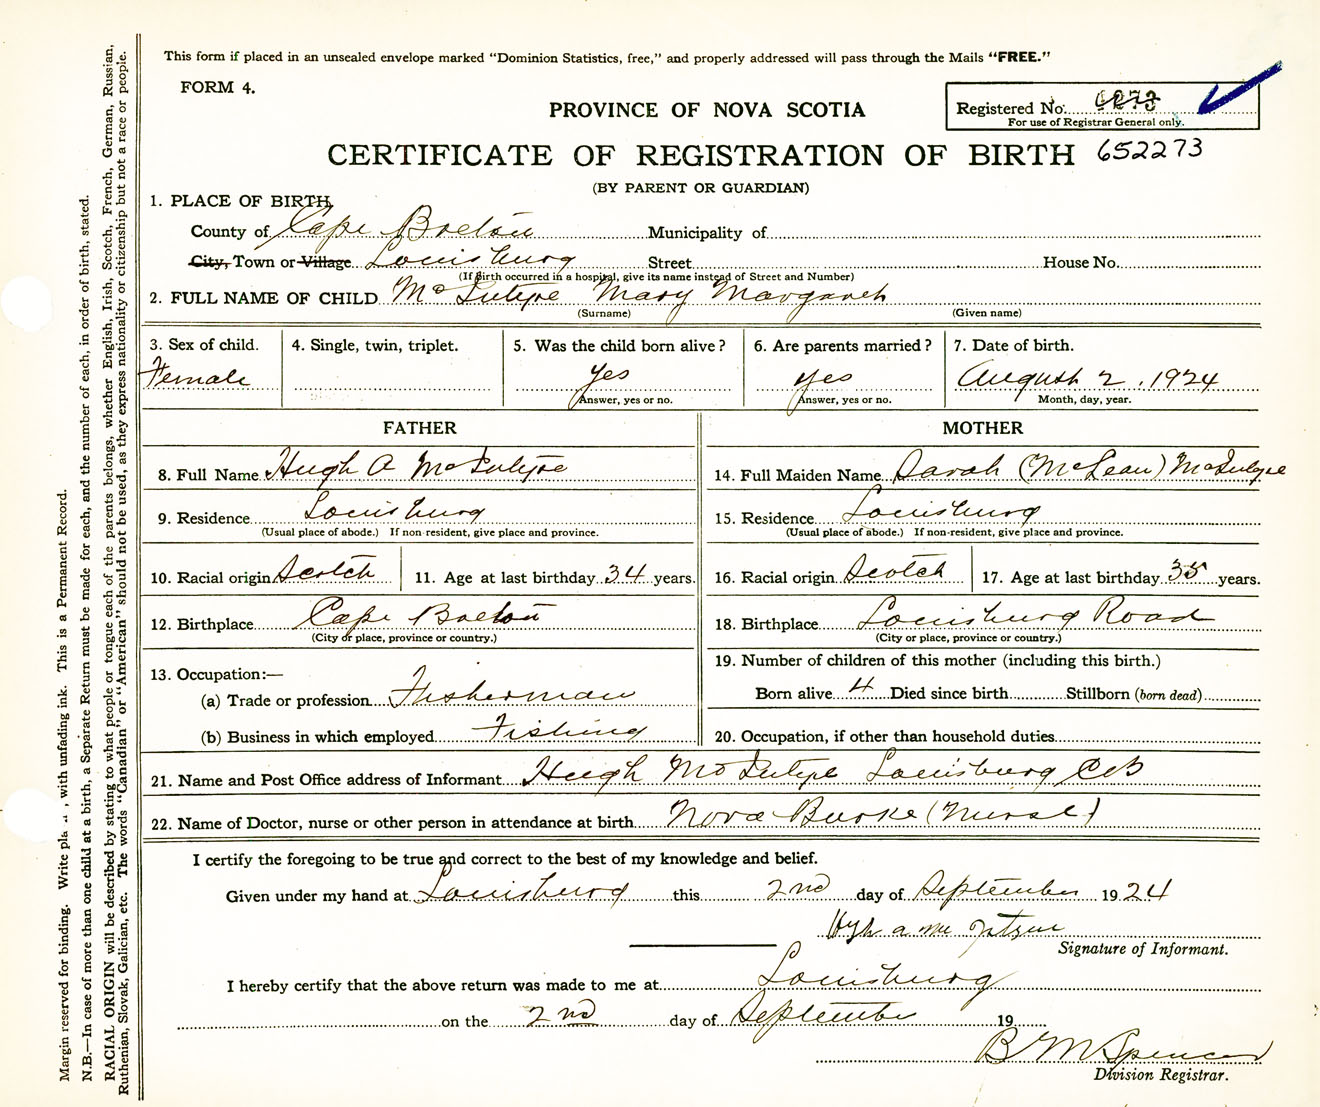 This form if placed in an unsealed envelope marked "Dominion Statistics, free," and properly addressed will pass through the Mails "FREE."
FORM 4.
PROVINCE OF NOVA SCOTIA
Registered No.
For use of Registrar General only.
CERTIFICATE OF REGISTRATION OF BIRTH 652273
(BY PARENT OR GUARDIAN)
1. PLACE OF BIRTH,
County of Cape Breton Municipality of
City, Town or Village Louisburg Street House No.
(If birth occurred in a hospital, give its name instead of Street and Number)
2. FULL NAME OF CHILD McIntyre Mary Margaret
(Surname) (Given name)
3. Sex of child. 4. Single, twin, triplet. 5. Was the child born alive? 6. Are parents married? 7. Date of birth.
Female yes yes August 2, 1924
Answer, yes or no. Answer, yes or no. Month, day, year.
FATHER MOTHER
8. Full Name Hugh A McIntyre 14. Full Maiden Name Sarah (McLean) McIntyre
9. Residence Louisburg 15. Residence Louisburg
(Usual place of abode.) If non-resident, give place and province. (Usual place of abode.) If non-resident, give place and province.
10. Racial origin Scotch 11. Age at last birthday 34 years. 16. Racial origin Scotch 17. Age at last birthday 35 years.
12. Birthplace Cape Breton 18. Birthplace Louisburg Road
(City or place, province or country.) (City or place, province or country.)
13. Occupation:— 19. Number of children of this mother (including this birth.)
(a) Trade or profession Fisherman Born alive 4 Died since birth Stillborn (born dead)
(b) Business in which employed Fishing 20. Occupation, if other than household duties
21. Name and Post Office address of Informant Hugh McIntyre Louisburg CB
22. Name of Doctor, nurse or other person in attendance at birth Nora Burke (Nurse)
I certify the foregoing to be true and correct to the best of my knowledge and belief.
Given under my hand at Louisburg this 2nd day of September 1924
Hugh A
Signature of Informant.
I hereby certify that the above return was made to me at Louisburg
on the 2nd day of September 19
B M Spencer
Division Registrar.
Margin reserved for binding. Write , with unfading ink. This is a Permanent Record.
N.B.—In case of more than one child at a birth, a Separate Return must be made for each, and the number of each, in order of birth, stated.
RACIAL ORIGIN will be described by stating to what people or tongue each of the parents belongs, whether English, Irish, Scotch, French, German, Russian,
Ruthenian, Slovak, Galician, etc. The words "Canadian" or "American" should not be used, as they express nationality or citizenship but not a race or people.